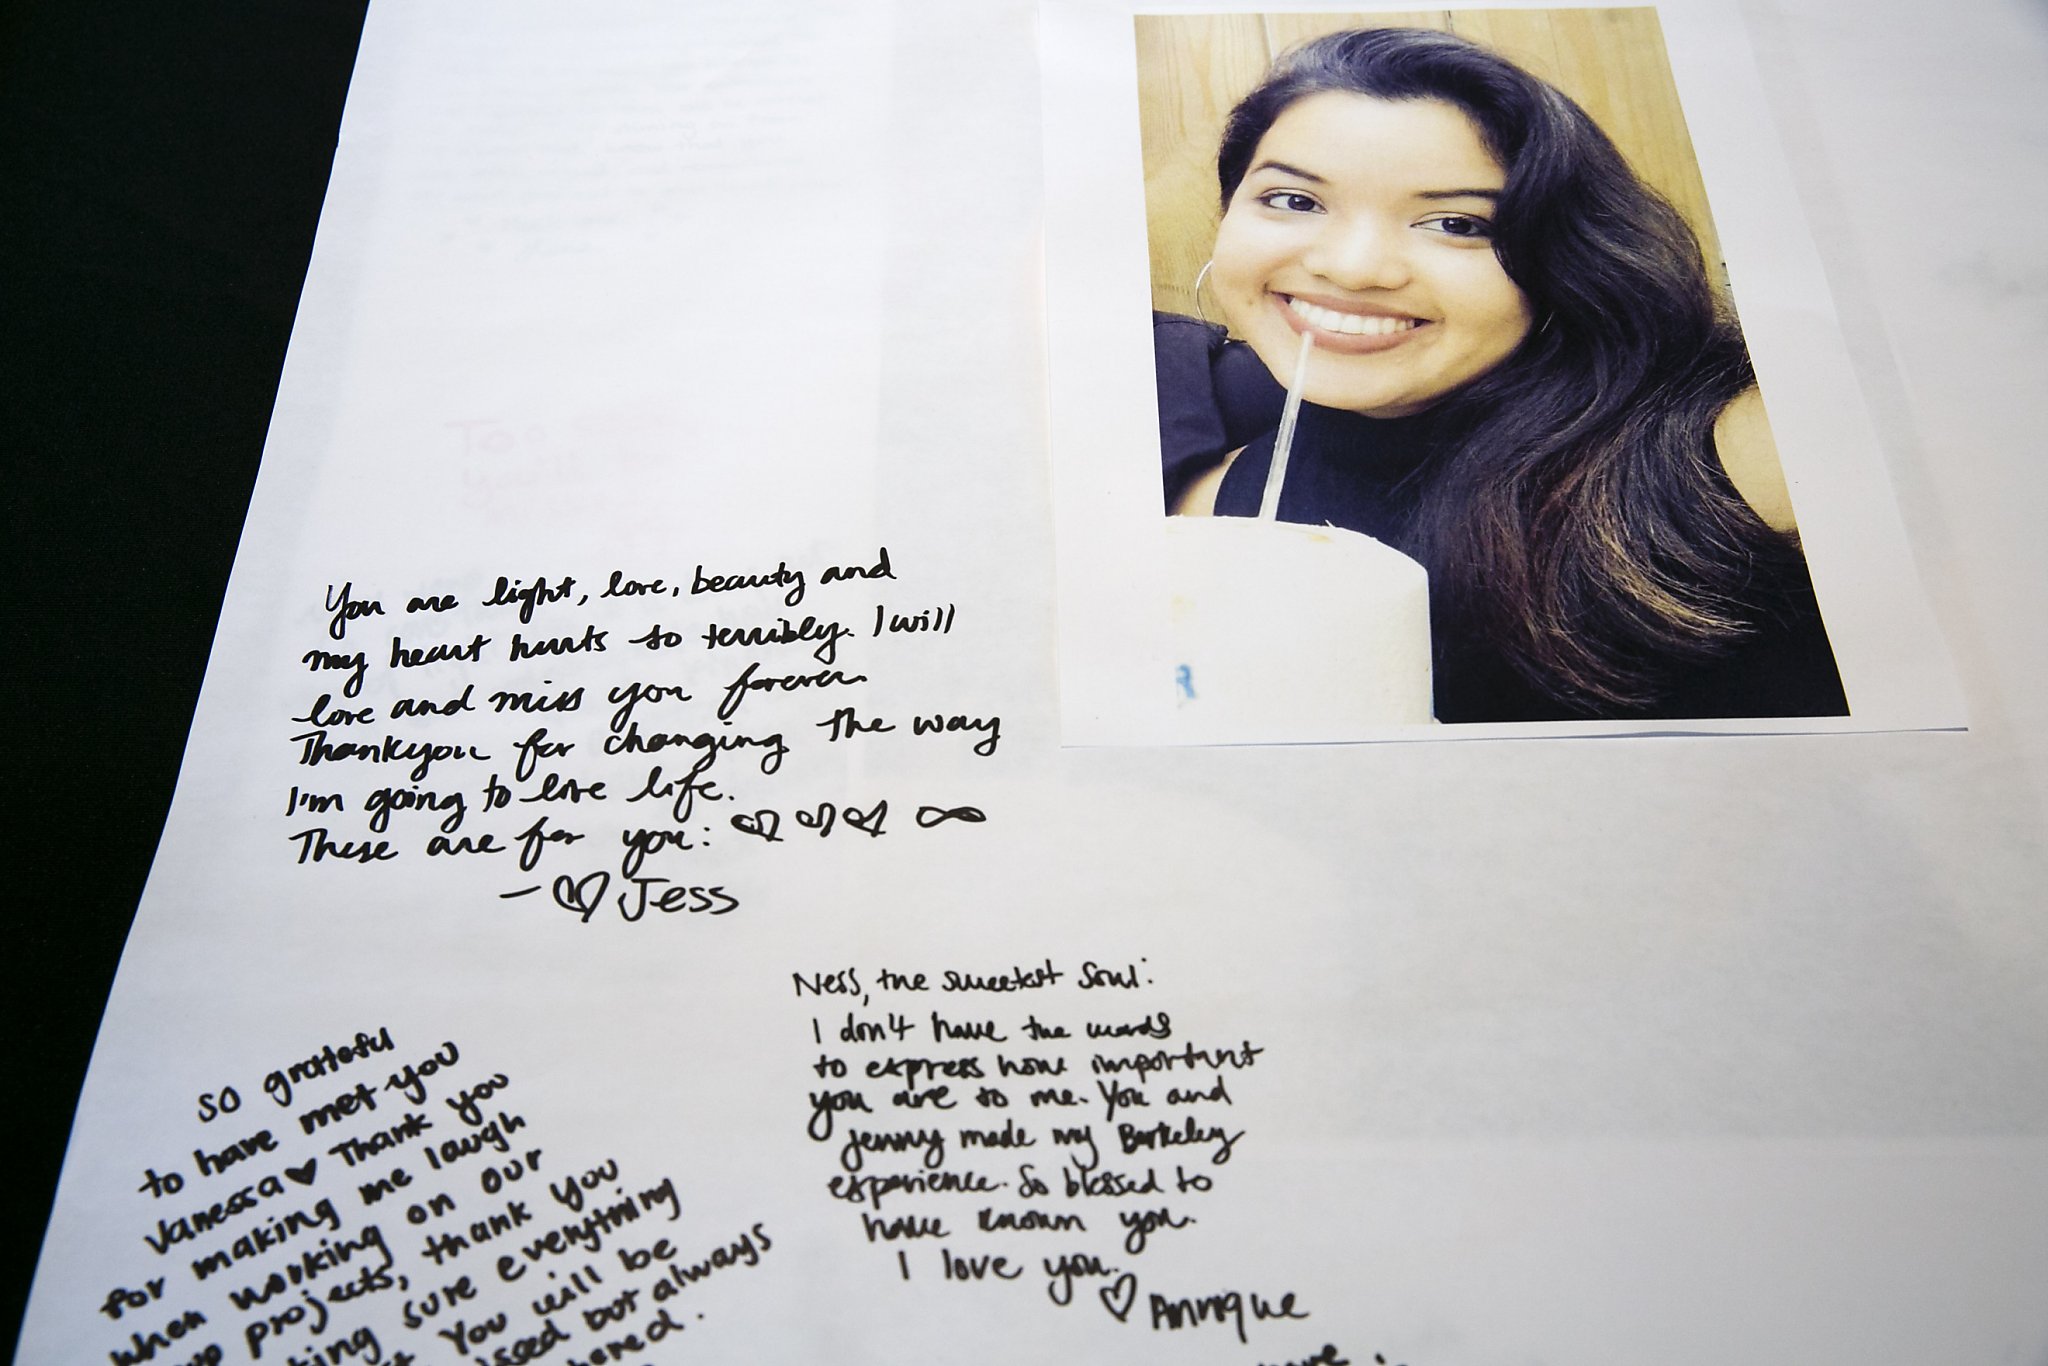 You are light, love, beauty and
my heart hurts so terribly. I will
love and miss you forever.
Thankyou for changing the way
I'm going to love life.
These are for you: ♡♡♡ ∞
- ♡ Jess
Ness, the sweetest soul:
I don't have the words
to express how important
you are to me. You and
Jenny made my Berkeley
experience. So blessed to
have known you.
I love you.
♡ Annique
so grateful
to have met you
Vanessa ♥ Thank you
for making me laugh
when working on our
projects, thank you
sure everything
You will be
but always